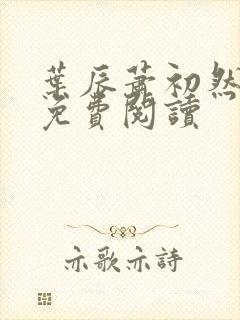 葉辰蕭初然
免費閱讀
亦歌亦詩